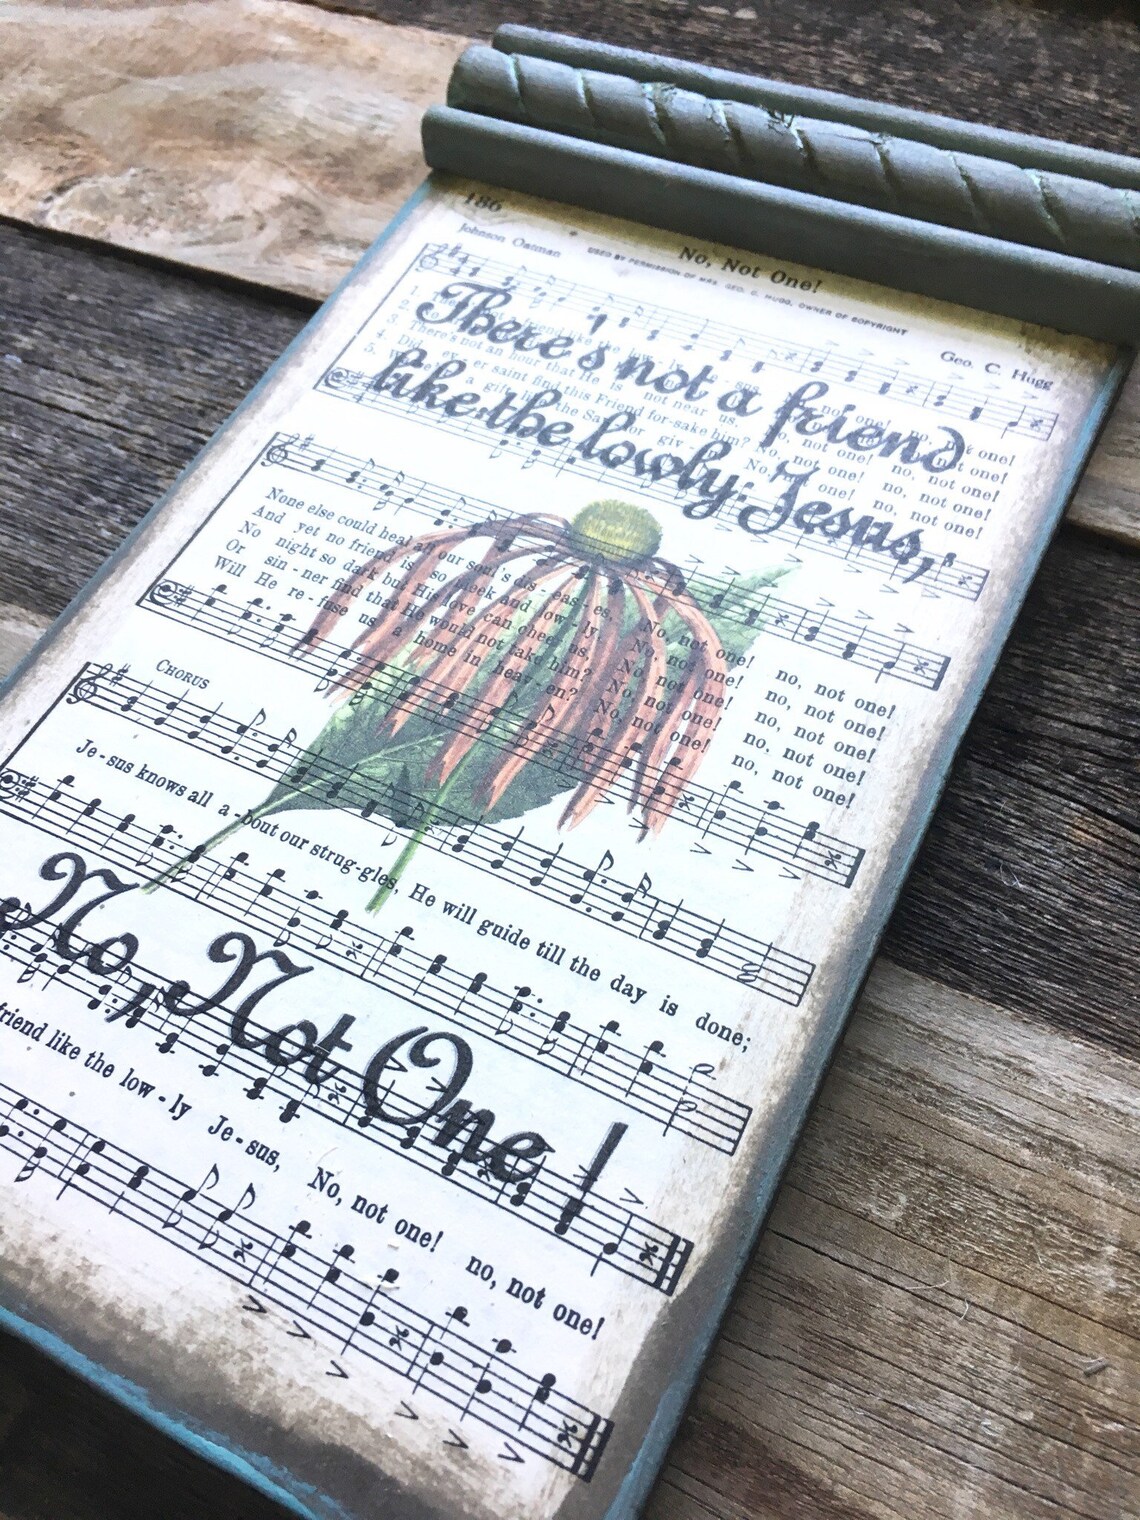 186
No, Not One!
Johnson Oatman
USED BY PERMISSION OF MRS. GEO. C. HUGG, OWNER OF COPYRIGHT
Geo. C. Hugg
There's not a friend
like the lowly Jesus,
1. no, not one!
2. no, not one!
3. There's not an hour that He is not near us, No, not one! no, not one!
4. Did ev - er saint find this Friend for-sake him? No, not one! no, not one!
5. a gift the Sa giv No, not one! no, not one!
None else could heal all our soul's dis - eas - es, No, not one! no, not one!
And yet no friend is so meek and low - ly, No, not one! no, not one!
No night so dark but His love can cheer us, No, not one! no, not one!
Or sin - ner find that He would not take him? No, not one! no, not one!
Will He re - fuse us a home in heav - en? No, not one! no, not one!
CHORUS
Je - sus knows all a - bout our strug-gles, He will guide till the day is done;
No, Not One!
friend like the low - ly Je - sus, No, not one! no, not one!